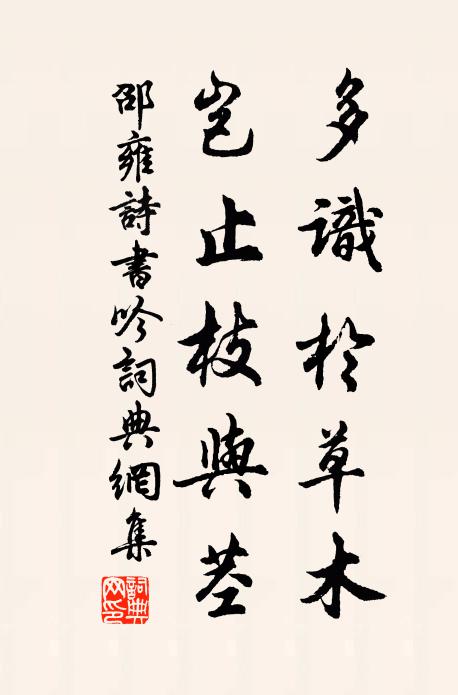 多識於草木
豈止枝與莖
邵雍詩書吟詞典網集
詞典网印